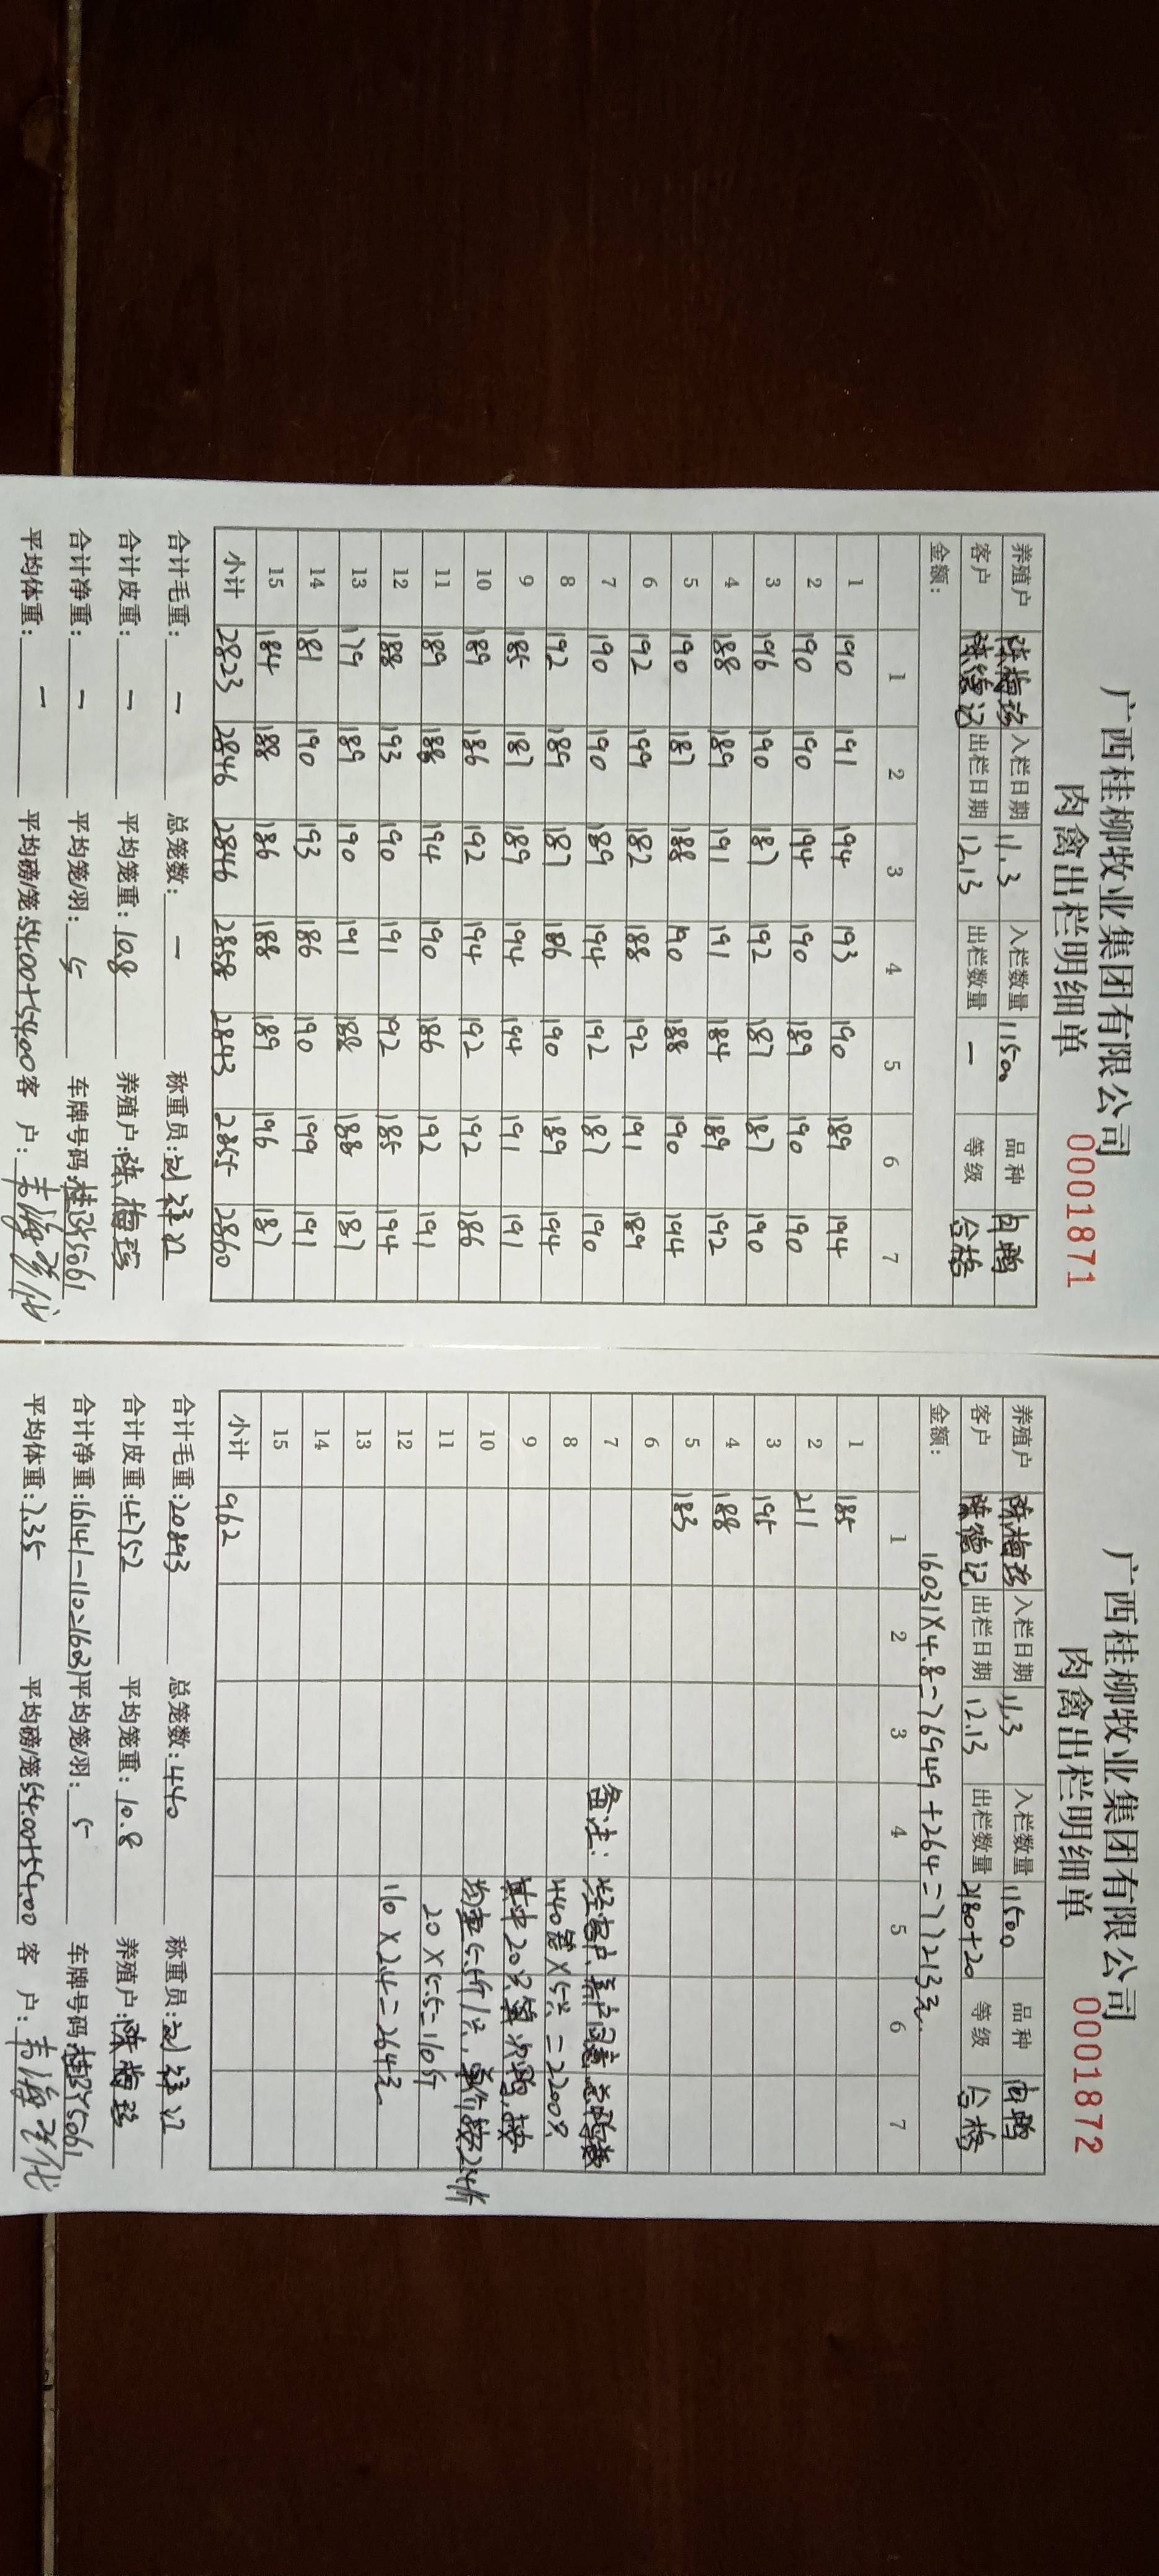 广西桂柳牧业集团有限公司
肉禽出栏明细单 0001871
养殖户 陈梅珍 入栏日期 11.3 入栏数量 11500 品种 白鸭
客户 陈德记 出栏日期 12.13 出栏数量 — 等级 合格
金额:
1 2 3 4 5 6 7
1 190 191 194 193 190 189 194
2 190 190 194 190 189 190 190
3 196 190 187 192 187 187 190
4 188 189 191 191 184 189 192
5 190 187 188 190 188 190 194
6 192 199 182 188 192 191 189
7 190 190 189 194 192 187 190
8 192 189 187 186 190 189 194
9 185 187 189 194 194 191 191
10 189 186 192 194 192 192 186
11 189 188 194 190 186 192 191
12 188 193 190 191 192 185 194
13 179 189 190 191 188 188 187
14 181 190 193 186 190 199 191
15 184 188 186 188 189 196 187
小计 2823 2846 2846 2858 2843 2855 2860
合计毛重: — 总笼数: — 称重员:
合计皮重: — 平均笼重: 10.8 养殖户: 陈梅珍
合计净重: — 平均笼/羽: 5 车牌号码:
平均体重: — 平均磅/笼: 54.00+54.00 客 户:
广西桂柳牧业集团有限公司
肉禽出栏明细单 0001872
养殖户 陈梅珍 入栏日期 11.3 入栏数量 11500 品种 白鸭
客户 陈德记 出栏日期 12.13 出栏数量 2180+20 等级 合格
金额: 16031×4.8=76949+264=77213元
1 2 3 4 5 6 7
1 185
2 211
3 195
4 188
5 183
6
7 备注: 经客户、养户同意 总鸭数
8 440笼×5只=2200只
9 其中20只算次鸭,按
10 均重5.5斤/只,单价按2.4/斤
11 20×5.5=110斤
12 110×2.4=264元
13
14
15
小计 962
合计毛重: 20893 总笼数: 440 称重员:
合计皮重: 4752 平均笼重: 10.8 养殖户: 陈梅珍
合计净重: 16141-110=16031 平均笼/羽: 5 车牌号码:
平均体重: 7.35 平均磅/笼 54.00+54.00 客 户: